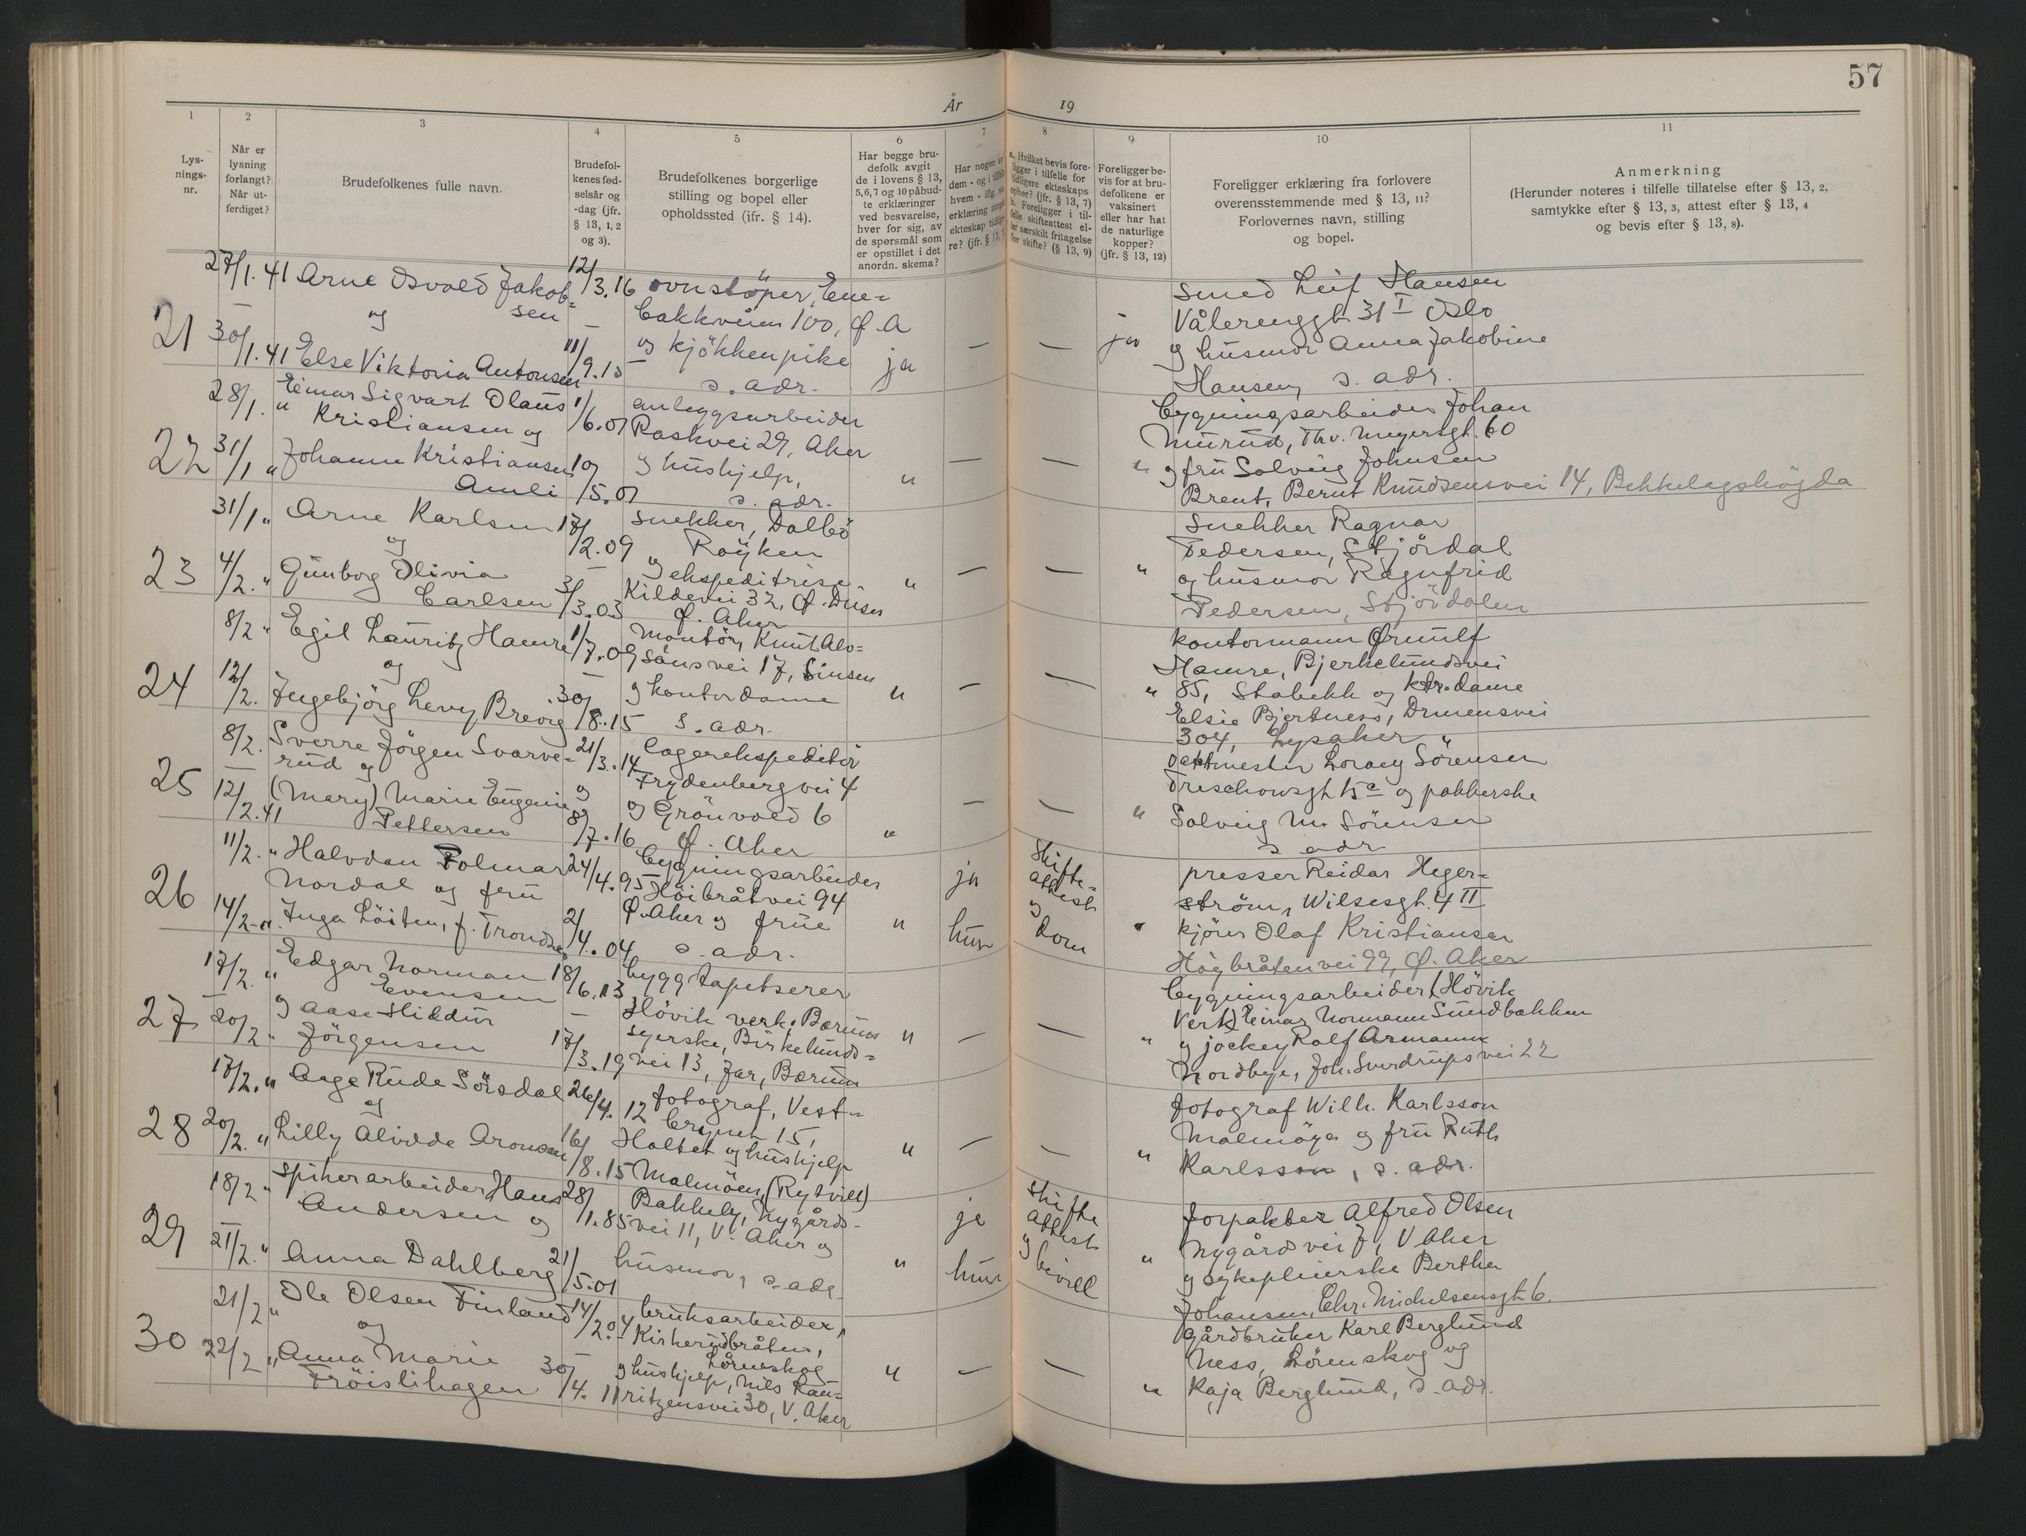 57
År 19
1
Lys-
nings-
nr.
2
Når er
lysning
forlangt?
Når ut-
ferdiget?
3
Brudefolkenes fulle navn.
4
Brudefol-
kenes fød-
selsår og
-dag (jfr.
§ 13, 1, 2
og 3).
5
Brudefolkenes borgerlige
stilling og bopel eller
opholdssted (ifr. § 14).
6
Har begge bru-
defolk avgit
de i lovens § 13,
5, 6, 7 og 10 påbud-
te erklæringer
ved besvarelse,
hver for sig, av
de spørsmål som
er opstillet i det
anordn. skema?
7
Har nogen av
dem - og i tilfelle
hvem - iflg.
erklæring inngått
ekteskap tidlige-
re? (jfr. § 13,
8
a. Hvilket bevis fore-
ligger i tilfelle for
tidligere ekteskaps
ophør? (jfr. § 13, 7)
b. Foreligger i til-
felle skifteattest el-
ler særskilt fritagelse
for skifte? (§ 13, 9)
9
Foreligger be-
vis for at bru-
defolkene er
vaksinert
eller har hat
de naturlige
kopper?
(jfr. § 13, 12)
10
Foreligger erklæring fra forlovere
overensstemmende med § 13, 11?
Forlovernes navn, stilling
og bopel.
11
Anmerkning
(Herunder noteres i tilfelle tillatelse efter § 13, 2,
samtykke efter § 13, 3, attest efter § 13, 4
og bevis efter § 13, 8).
21
27/1.41
30/1.41
Arne Osvald Jakob-
sen
og
Else Viktoria Antonsen
12/3.16
11/9.15
ovnstöper, Ene-
bakkveien 100, Ø. A
og kjökkenpike
s. adr.
ja
—
—
ja
Smed Leif Hansen
Vålerenggt 31 I Oslo
og husmor Anna Jakobine
Hansen, s. adr.
22
28/1. "
31/1 "
Einar Sigvart Olaus
Kristiansen og
Johanne Kristiansen
Amli
1/6.07
10/5.07
anleggsarbeider
Raskvei 29, Aker
og hushjelp,
s. adr.
"
—
—
"
bygningsarbeider Johan
Murud, Th. v. Meyersgt. 60
og fru Solveig Johnsen
Brent, Bernt Knudsensvei 14, Bekkelagshögda
23
31/1 "
4/2. "
Arne Karlsen
og
Gunbog Olivia
Carlsen
17/2.09
31/3.03
snekker, Dalbö
Röyken
og ekspeditrise
Kildevei 32, Ø. Disen
Ø. Aker
"
—
—
"
Snekker Ragnar
Pedersen, Stjördal
og husmor Ragnfrid
Pedersen, Stjördalen
24
8/2 "
12/2.
Egil Lauritz Hamre
og
Ingebjörg Levy Brevig
1/7.09
30/8.15
Montör, Knut Alv-
sönsvei 17, Sinsen
og kontordame
s. adr.
"
—
—
"
kontormann Ørnulf
Hamre, Bjerkelundsvei
85, Stabekk og ktr.dame
Elsie Bjertness, Drmensvei
304, Lysaker
25
8/2.
12/2.41
Sverre Jörgen Svarve-
rud og
(Mary) Marie Eugenie
Pettersen
21/3.14
og
8/7.16
lagerekspeditör
Frydenbergvei 4
og Grönvold 6
Ø. Aker
"
—
—
"
vaktmester Loraey Sörensen
Treschowsgt 15 c og pakkerske
Solveig M. Sörensen
s adr
26
11/2. "
14/2. "
Halvdan Folmar
Nordal og fru
Inga Löiten, f. Trondsen
24/4.95
2/4.04
bygningsarbeider
Höibråtvei 94
Ø. Aker og frue
s. adr.
"
ja
hun
Skifte-
attest
og
dom
"
presser Reidar Heger-
ström, Wilsesgt. 4 II
kjörer Olaf Kristiansen
Högbråtenvei 99, Ø. Aker
27
17/2. "
20/2 "
Edgar Norman
Evensen
og Aase Hildur
Jörgensen
18/6.13
17/3.19
bygg tapetserer
Hövik verk. Bærum
syerske, Birkelunds-
vei 13, Jar, Bærum
"
—
—
"
bygningsarbeider (Hövik
Verk) Einar Normann Sundbakken
og jockey Rolf Armann
Nordbye, Joh. Sverdrupsvei 22
28
17/2. "
20/2. "
Aage Rude Sörsdal
og
Lilly Alvilde Aronsen
26/4.12
16/8.15
fotograf, Vest-
brynet 15,
Holtet og hushjelp
Malmöen (Rytvill)
"
—
—
"
fotograf Wilh. Karlsson
Malmöya og fru Ruth
Karlsson, s. adr.
29
18/2 "
21/2. "
Spikerarbeider Hans
Andersen og
Anna Dahlberg
28/11.85
21/5.01
Bakkely, Nygårds-
vei 11, V. Aker og
husmor, s. adr
"
ja
hun
skifte
attest
og
bevill
"
forpakter Alfred Olsen
Nygårdsvei 7, V Aker
og sykepleierske Berthe
Johansen, Chr. Michelsensgt 6.
30
21/2 "
22/2 "
Ole Olsen Finland
og
Anna Marie
Fröislihagen
14/2.04
30/4.11
bruksarbeider,
Kirkerudbråten,
Lörenskog
og hushjelp, Nils Lau-
ritzensvei 30, V. Aker
"
—
—
"
Gårdbruker Karl Berglund
Ness, Lörenskog og
Kaja Berglund, s. adr.